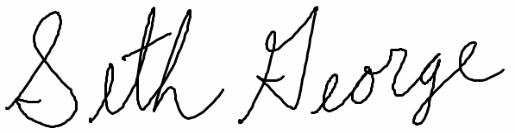 Seth George